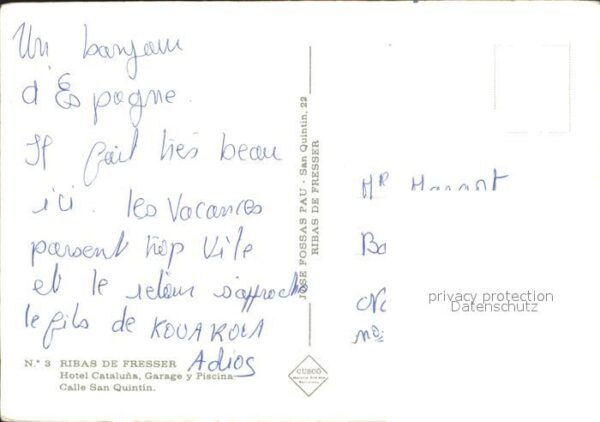 Un bonjour
d'Espagne.
Il fait très beau
ici. les Vacances
passent trop Vite
et le retour s'approche
le fils de KOUAKOUA
Adios
N.° 3 RIBAS DE FRESSER
Hotel Cataluña, Garage y Piscina
Calle San Quintín.
JOSE FOSSAS PAU - San Quintín, 22
RIBAS DE FRESSER
CUSCÓ
Mr
privacy protection
Datenschutz